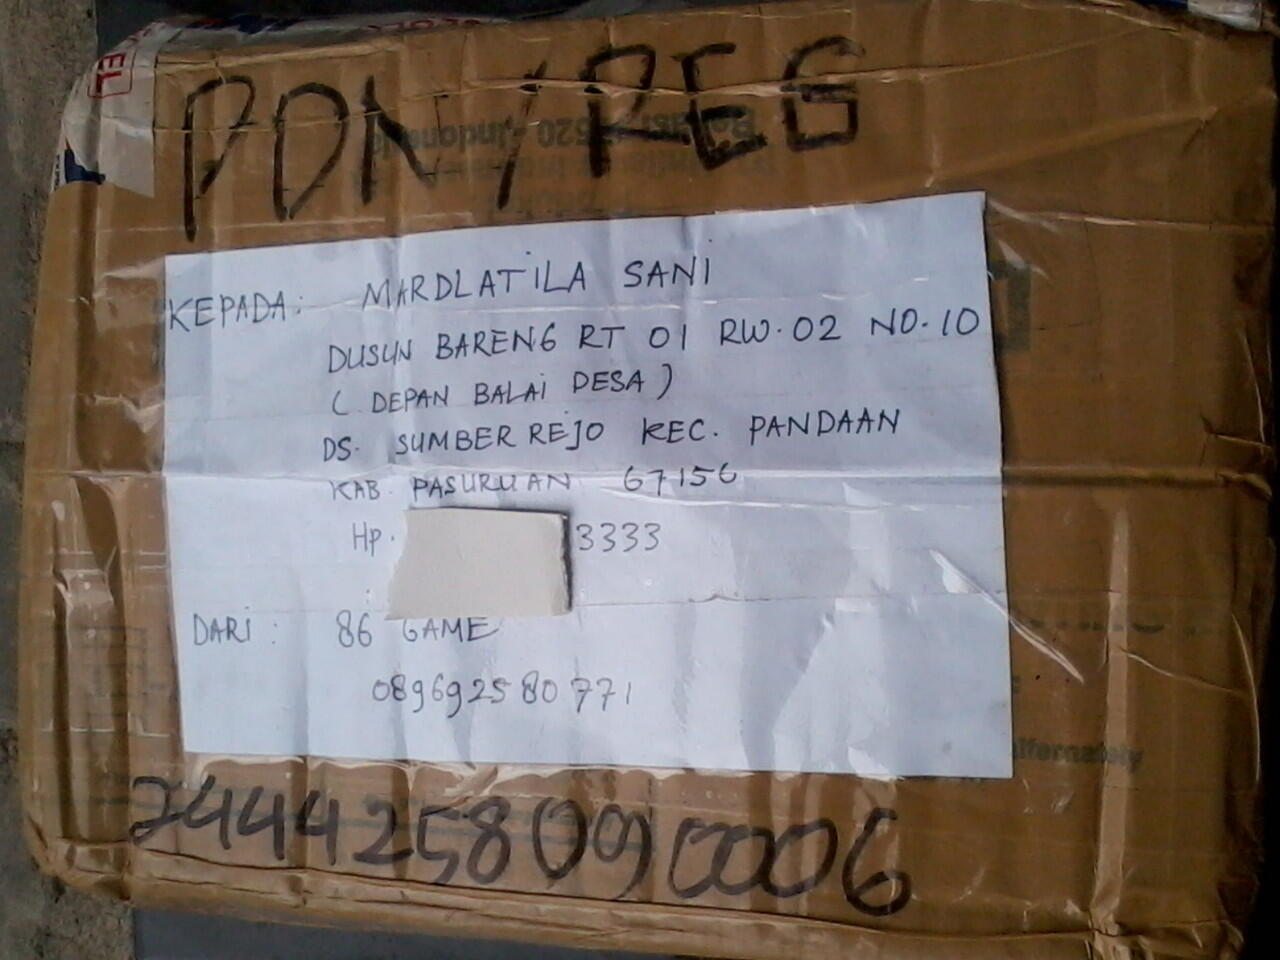 PDN/REG
KEPADA: MARDLATILA SANI
DUSUN BARENG RT 01 RW. 02 NO. 10
( DEPAN BALAI DESA )
DS. SUMBER REJO KEC. PANDAAN
KAB. PASURUAN 67156
Hp. 3333
DARI : 86 GAME
089692580771
2444258090006